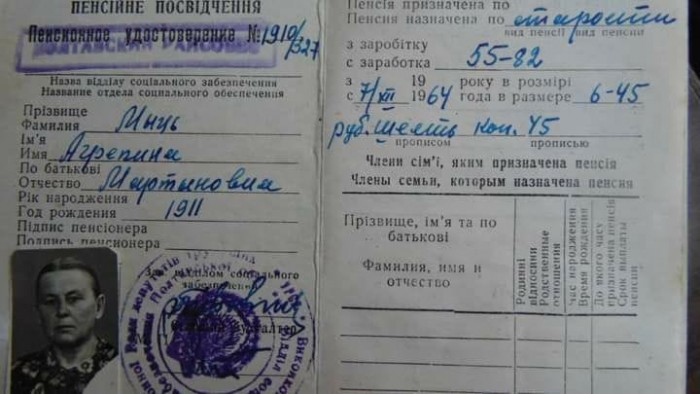 ПЕНСІЙНЕ ПОСВІДЧЕННЯ
Пенсионное удостоверение № 1910/327
ПОЛТАВСКИЙ РАЙСОБЕС
Назва відділу соціального забезпечення
Название отдела социального обеспечения
Прізвище
Фамилия Мыць
Ім'я
Имя Агрепина
По батькові
Отчество Мартыновна
Рік народження
Год рождения 1911
Підпис пенсіонера
Подпись пенсионера
Зав. відділом соціального
забезпечення
бухгалтер
Пенсія призначена по
Пенсия назначена по старости
вид пенсії вид пенсии
з заробітку
с заработка 55-82
з 19 року в розмірі
с 7/XII 1964 года в размере 6-45
руб. шесть коп. 45
прописом прописью
Члени сім'ї, яким призначена пенсія
Члены семьи, которым назначена пенсия
Прізвище, ім'я та по
батькові
Фамилия, имя и
отчество
Родинні
відносини
Родственные
отношения
Час народження
Время рождения
До якого часу
призначена пенсія
Срок выплаты
пенсии